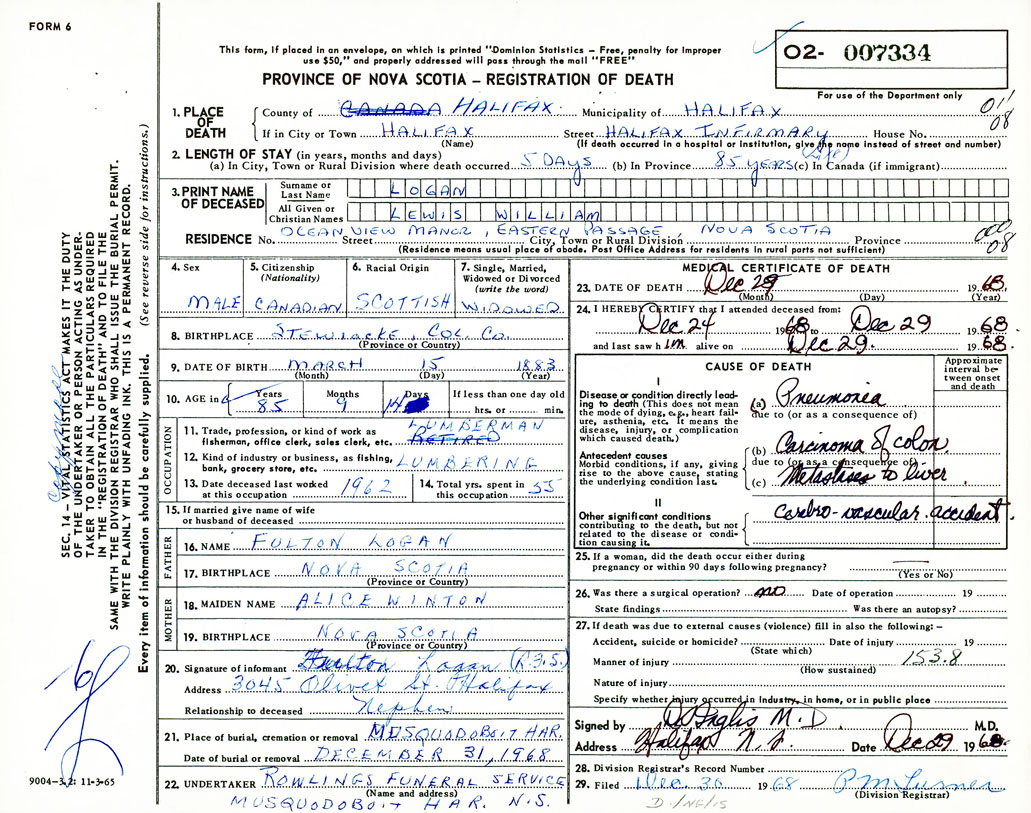 FORM 6
This form, if placed in an envelope, on which is printed "Dominion Statistics – Free, penalty for improper
use $50," and properly addressed will pass through the mail "FREE"
PROVINCE OF NOVA SCOTIA – REGISTRATION OF DEATH
02- 007334
For use of the Department only
011
08
1. PLACE OF DEATH
County of CANADA HALIFAX Municipality of HALIFAX
If in City or Town HALIFAX Street HALIFAX INFIRMARY House No.
(Name) (If death occurred in a hospital or institution, give the name instead of street and number)
2. LENGTH OF STAY (in years, months and days)
(a) In City, Town or Rural Division where death occurred 5 DAYS (b) In Province 85 YEARS (Life) (c) In Canada (if immigrant)
3. PRINT NAME OF DECEASED
Surname or Last Name LOGAN
All Given or Christian Names LEWIS WILLIAM
OCEAN VIEW MANOR, EASTERN PASSAGE, NOVA SCOTIA
RESIDENCE No. Street City, Town or Rural Division Province
(Residence means usual place of abode. Post Office Address for residents in rural parts not sufficient)
08
4. Sex MALE
5. Citizenship (Nationality) CANADIAN
6. Racial Origin SCOTTISH
7. Single, Married, Widowed or Divorced (write the word) WIDOWED
8. BIRTHPLACE STEWIACKE, COL. CO.
(Province or Country)
9. DATE OF BIRTH MARCH 15 1883
(Month) (Day) (Year)
10. AGE in Years 85 Months 9 Days 14 If less than one day old hrs. or min.
OCCUPATION
11. Trade, profession, or kind of work as fisherman, office clerk, sales clerk, etc. LUMBERMAN RETIRED
12. Kind of industry or business, as fishing, bank, grocery store, etc. LUMBERING
13. Date deceased last worked at this occupation 1962
14. Total yrs. spent in this occupation 55
15. If married give name of wife or husband of deceased
FATHER
16. NAME FULTON LOGAN
17. BIRTHPLACE NOVA SCOTIA
(Province or Country)
MOTHER
18. MAIDEN NAME ALICE WINTON
19. BIRTHPLACE NOVA SCOTIA
(Province or Country)
20. Signature of informant Logan (R.F.S.)
Address 3045 Olivet St. Halifax
Relationship to deceased Nephew
21. Place of burial, cremation or removal MUSQUODOBOIT HAR.
Date of burial or removal DECEMBER 31, 1968
22. UNDERTAKER ROWLINGS FUNERAL SERVICE
(Name and address)
MUSQUODOBOIT HAR. N.S.
MEDICAL CERTIFICATE OF DEATH
23. DATE OF DEATH Dec 29 1968
(Month) (Day) (Year)
24. I HEREBY CERTIFY that I attended deceased from:
Dec. 24 1968 to Dec 29 1968
and last saw him alive on Dec 29 1968.
CAUSE OF DEATH
Approximate interval between onset and death
I
Disease or condition directly leading to death (This does not mean the mode of dying, e.g., heart failure, asthenia, etc. It means the disease, injury, or complication which caused death.)
(a) Pneumonia
due to (or as a consequence of)
Antecedent causes
Morbid conditions, if any, giving rise to the above cause, stating the underlying condition last.
(b) Carcinoma of colon
due to (or as a consequence of)
(c) Metastases to liver
II
Other significant conditions
contributing to the death, but not related to the disease or condition causing it.
Cerebro-vascular accident
25. If a woman, did the death occur either during pregnancy or within 90 days following pregnancy?
(Yes or No)
26. Was there a surgical operation? no Date of operation 19
State findings Was there an autopsy?
27. If death was due to external causes (violence) fill in also the following: –
Accident, suicide or homicide? Date of injury 19
(State which)
Manner of injury 153.8
(How sustained)
Nature of injury
Specify whether injury occurred in industry, in home, or in public place
Signed by Inglis M.D. M.D.
Address Halifax N.S. Date Dec 29 1968
28. Division Registrar's Record Number
29. Filed Dec. 30 1968
(Division Registrar)
SEC. 14 – VITAL STATISTICS ACT MAKES IT THE DUTY
OF THE UNDERTAKER OR PERSON ACTING AS UNDER-
TAKER TO OBTAIN ALL THE PARTICULARS REQUIRED
IN THE "REGISTRATION OF DEATH" AND TO FILE THE
SAME WITH THE DIVISION REGISTRAR WHO SHALL ISSUE THE BURIAL PERMIT.
WRITE PLAINLY WITH UNFADING INK. THIS IS A PERMANENT RECORD.
Every item of information should be carefully supplied. (See reverse side for instructions.)
9004-3.2: 11-3-65